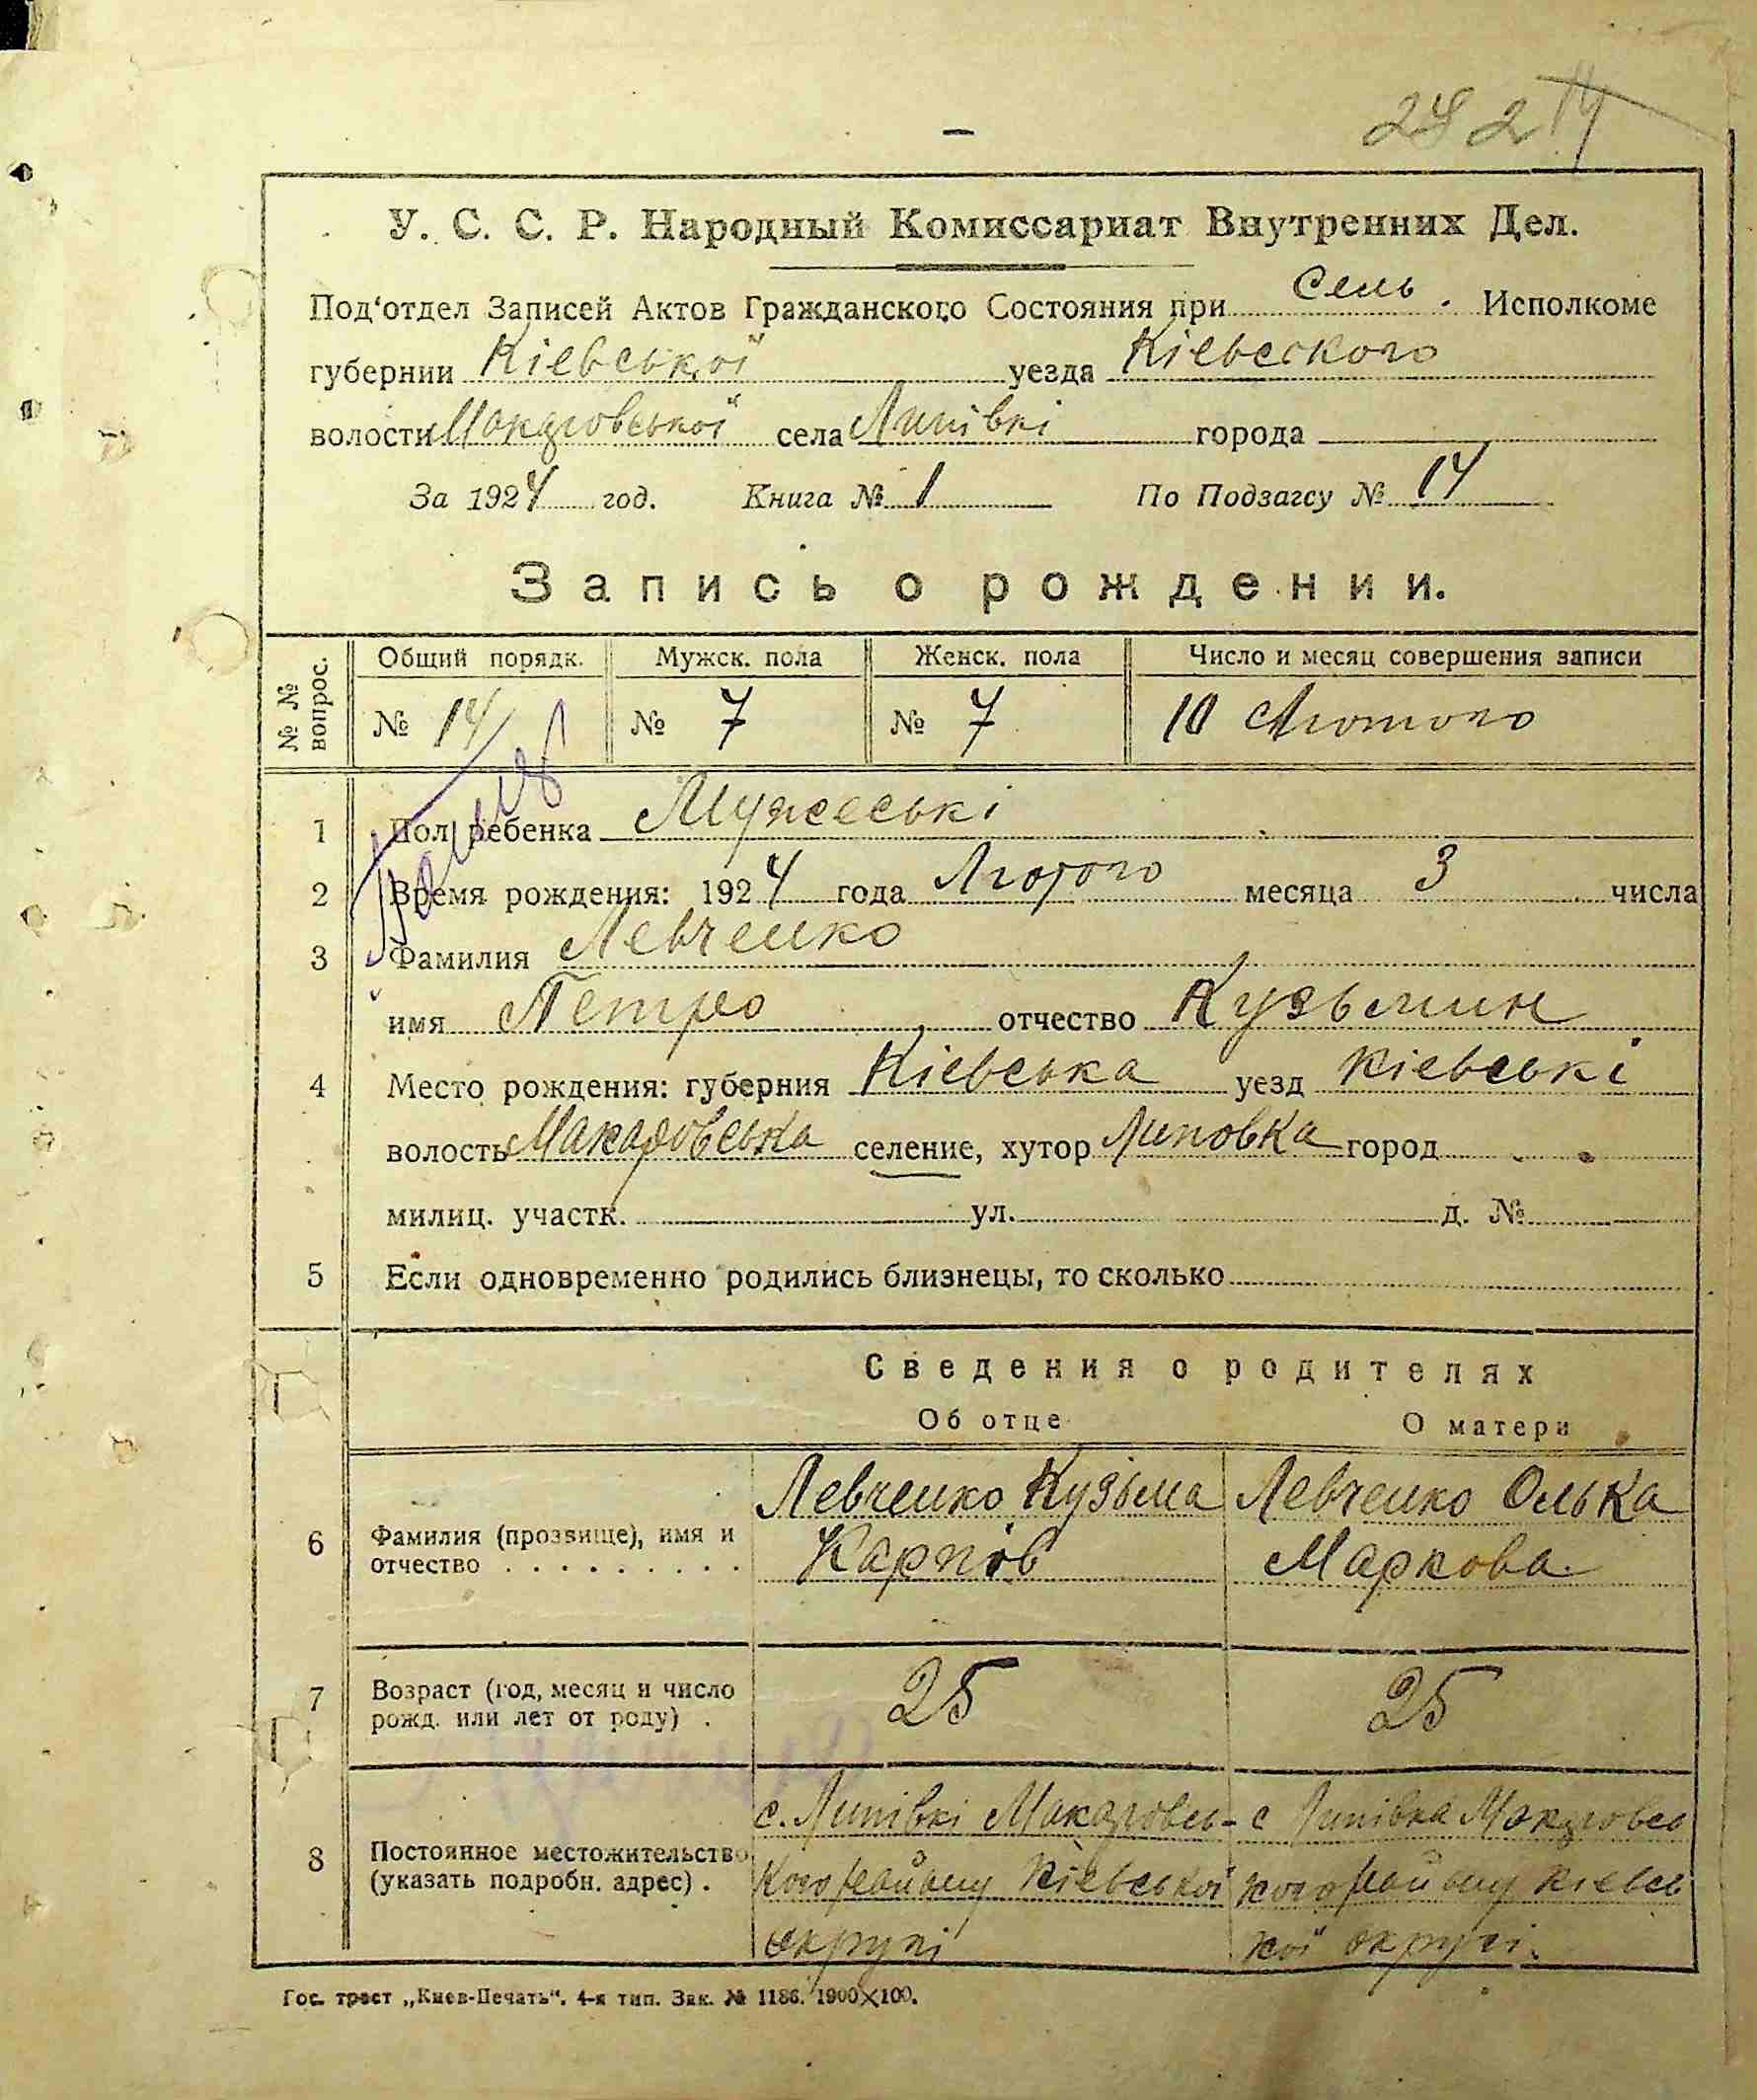 У. С. С. Р. Народный Комиссариат Внутренних Дел.
Под'отдел Записей Актов Гражданского Состояния при Сель. Исполкоме
губернии Кіевської уезда Кіевского
волости Макаровської села Липівкі города
За 1924 год. Книга № 1 По Подзагсу № 14
Запись о рождении.
№ № вопрос. Общий порядк. Мужск. пола Женск. пола Число и месяц совершения записи
№ 14 № 7 № 7 10 Лютого
1 Пол ребенка Мужеські
2 Время рождения: 1924 года Лютого месяца 3 числа
3 Фамилия Левченко
имя Петро отчество Кузьмин
4 Место рождения: губерния Кіевська уезд Кіевські
волость Макаровська селение, хутор Липовка город
милиц. участк. ул. д. №
5 Если одновременно родились близнецы, то сколько
Сведения о родителях
Об отце О матери
6 Фамилия (прозвище), имя и отчество
Левченко Кузьма
Карпів
Левченко Олька
Маркова
7 Возраст (год, месяц и число рожд. или лет от роду).
25 25
8 Постоянное местожительство (указать подробн. адрес).
с. Липівкі Макаровсь-
кого району Кіевської
округі
с Липівка Макаровсь
кого району Кіевсь
кої округі.
Гос. трест „Киев-Печать“. 4-я тип. Зак. № 1186. 1900×100.